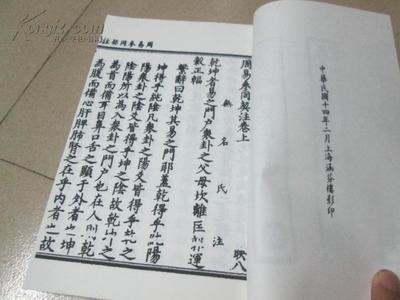 中華民國十四年二月上海涵芬樓影印
周易參同契注卷上
無名氏注
映八
乾坤者易之門户衆卦之父母坎離匡郭運
轂正軸
繫辭曰乾坤其易之門耶蓋乾得乎純陽
坤得乎純陰凡衆卦之陽爻皆得乎乾之
陽衆卦之陰爻皆得乎坤之陰故乾坤之
陰陽所以為衆卦之門户也在人則乾
為首而備耳目鼻口舌之顯于外者也坤
為腹而備心肝脾肺腎之在乎内者也故
周易參同契注